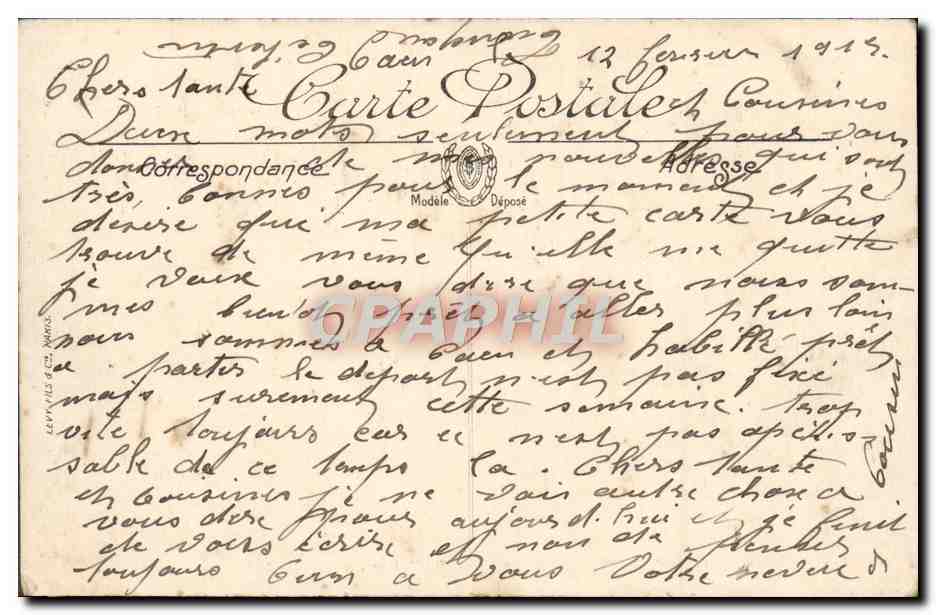 Caen le 12 fevrier 1915.
Chers tante et Cousines
Carte Postale
Deux mots seulement pour vous
donné de mes nouvelles qui sont
Correspondance
Adresse
très bonnes pour le moment et je
Modèle Déposé
désire que ma petite carte vous
trouve de même Qu'elle me quitte
je veux vous dire que nous som-
mes bientot prêt a aller plus loin
nous sommes a Caen et habillé prêt
a partir le depart n'est pas fixé
mais surement cette semaine. trop
vite toujours car ce n'est pas
sable de ce temps la. Chers tante
et Cousines je ne vois autre chose a
vous dire pour aujourd'hui et je finit
de vous écrire et non de penser
toujours bien a vous Votre neveu &
Cousin
LEVY FILS & Cie, PARIS.
CPAPHIL